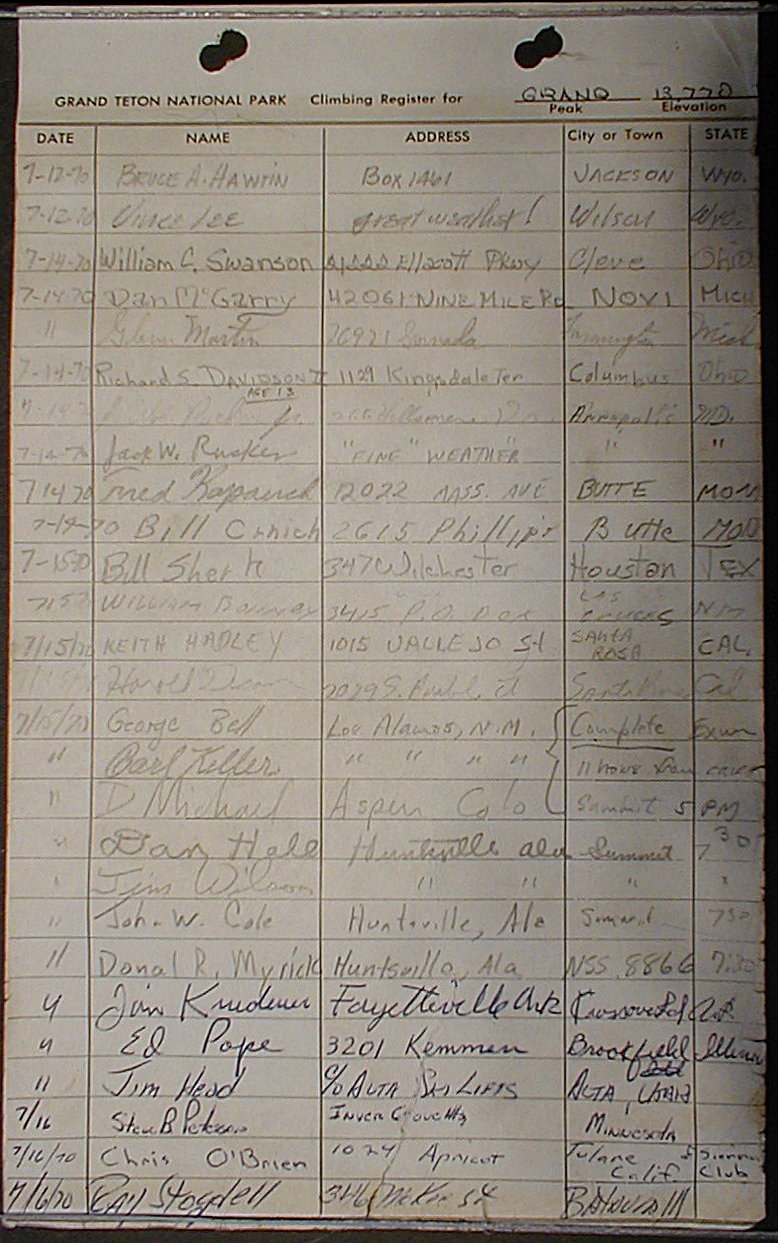 GRAND TETON NATIONAL PARK Climbing Register for GRAND 13,770
Peak Elevation
DATE NAME ADDRESS City or Town STATE
7-12-70 BRUCE A. HAWTIN BOX 1461 JACKSON WYO.
7-12-70 Vince Lee great weather! Wilson Wyo.
7-14-70 William C. Swanson Pkwy Cleve Ohio
7-14-70 Dan McGarry 42061 NINE MILE RD NOVI MICH
" Glenn Martin 26921 Farmington Mich
7-14-70 Richard S. DAVIDSON II 1129 Kingsdale Ter Columbus Ohio
AGE 13
Jr. Annapolis MD.
7-14-70 Jack W. Rucker "FINE" WEATHER " "
7 14 70 Fred 12022 MASS. AVE BUTTE MON
7-14-70 Bill 2615 Phillips Butte MON
7-15-70 Bill 347 Wilchester Houston TEX
WILLIAM 3415 P.O. BOX LAS CRUCES NM
7/15/70 KEITH HADLEY 1015 VALLEJO St SANTA ROSA CAL.
Harold Santa Cal
7/15/70 George Bell Los Alamos, N.M. Complete Exum
" Carl Keller " " " " 11 hours from
" D Michael Aspen Colo Summit 5 PM
" Dan Hale Huntsville ala Summit 7 30
" Jim Wilson " " " "
" John W. Cole Huntsville, Ala Summit 730
" Donal R. Myrick Huntsville, Ala NSS 8866 7:30
" Jim Fayetteville Ark
" Ed Pope 3201 Kemman Brookfield Illinois
" Jim Head c/o ALTA SKI LIFTS ALTA, UTAH
7/16 Steve B. Peterson INVER GROVE HTS MINNESOTA
7/16/70 Chris O'Brien 1024 Apricot Calif. Sierra Club
7/16/70 Ray Stogdell BATAVIA Ill